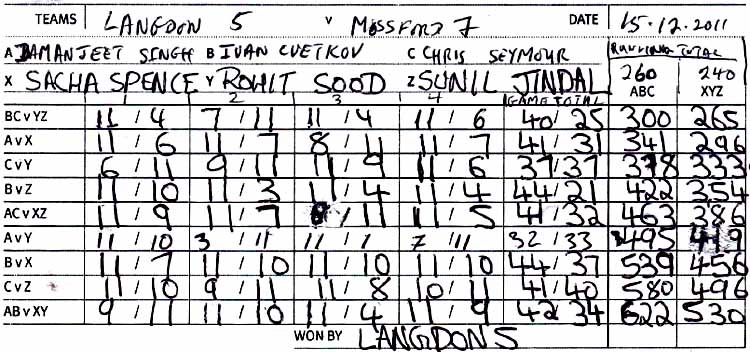 TEAMS LANGDON 5 v MOSSFORD 7 DATE 15-12-2011
A DAMANJEET SINGH B IVAN CVETKOV C CHRIS SEYMOUR RUNNING TOTAL
X SACHA SPENCE Y ROHIT SOOD Z SUNIL JINDAL 260 ABC 240 XYZ
1 2 3 4 GAME TOTAL
BCvYZ 11/4 7/11 11/4 11/6 40/25 300 265
AvX 11/6 11/7 8/11 11/7 41/31 341 296
CvY 6/11 9/11 11/9 11/6 37/37 378 333
BvZ 11/10 11/3 11/4 11/4 44/21 422 354
ACvXZ 11/9 11/7 8/11 11/5 41/32 463 386
AvY 11/10 3/11 11/1 7/11 32/33 495 419
BvX 11/7 11/10 11/10 11/10 44/37 539 456
CvZ 11/10 9/11 11/8 10/11 41/40 580 496
ABvXY 9/11 11/10 11/4 11/9 42/34 622 530
WON BY LANGDON 5